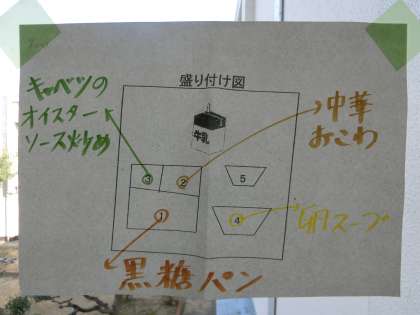 盛り付け図
キャベツの
オイスター
ソース炒め
中華
おこわ
牛乳
③
②
5
①
④
卵スープ
黒糖パン